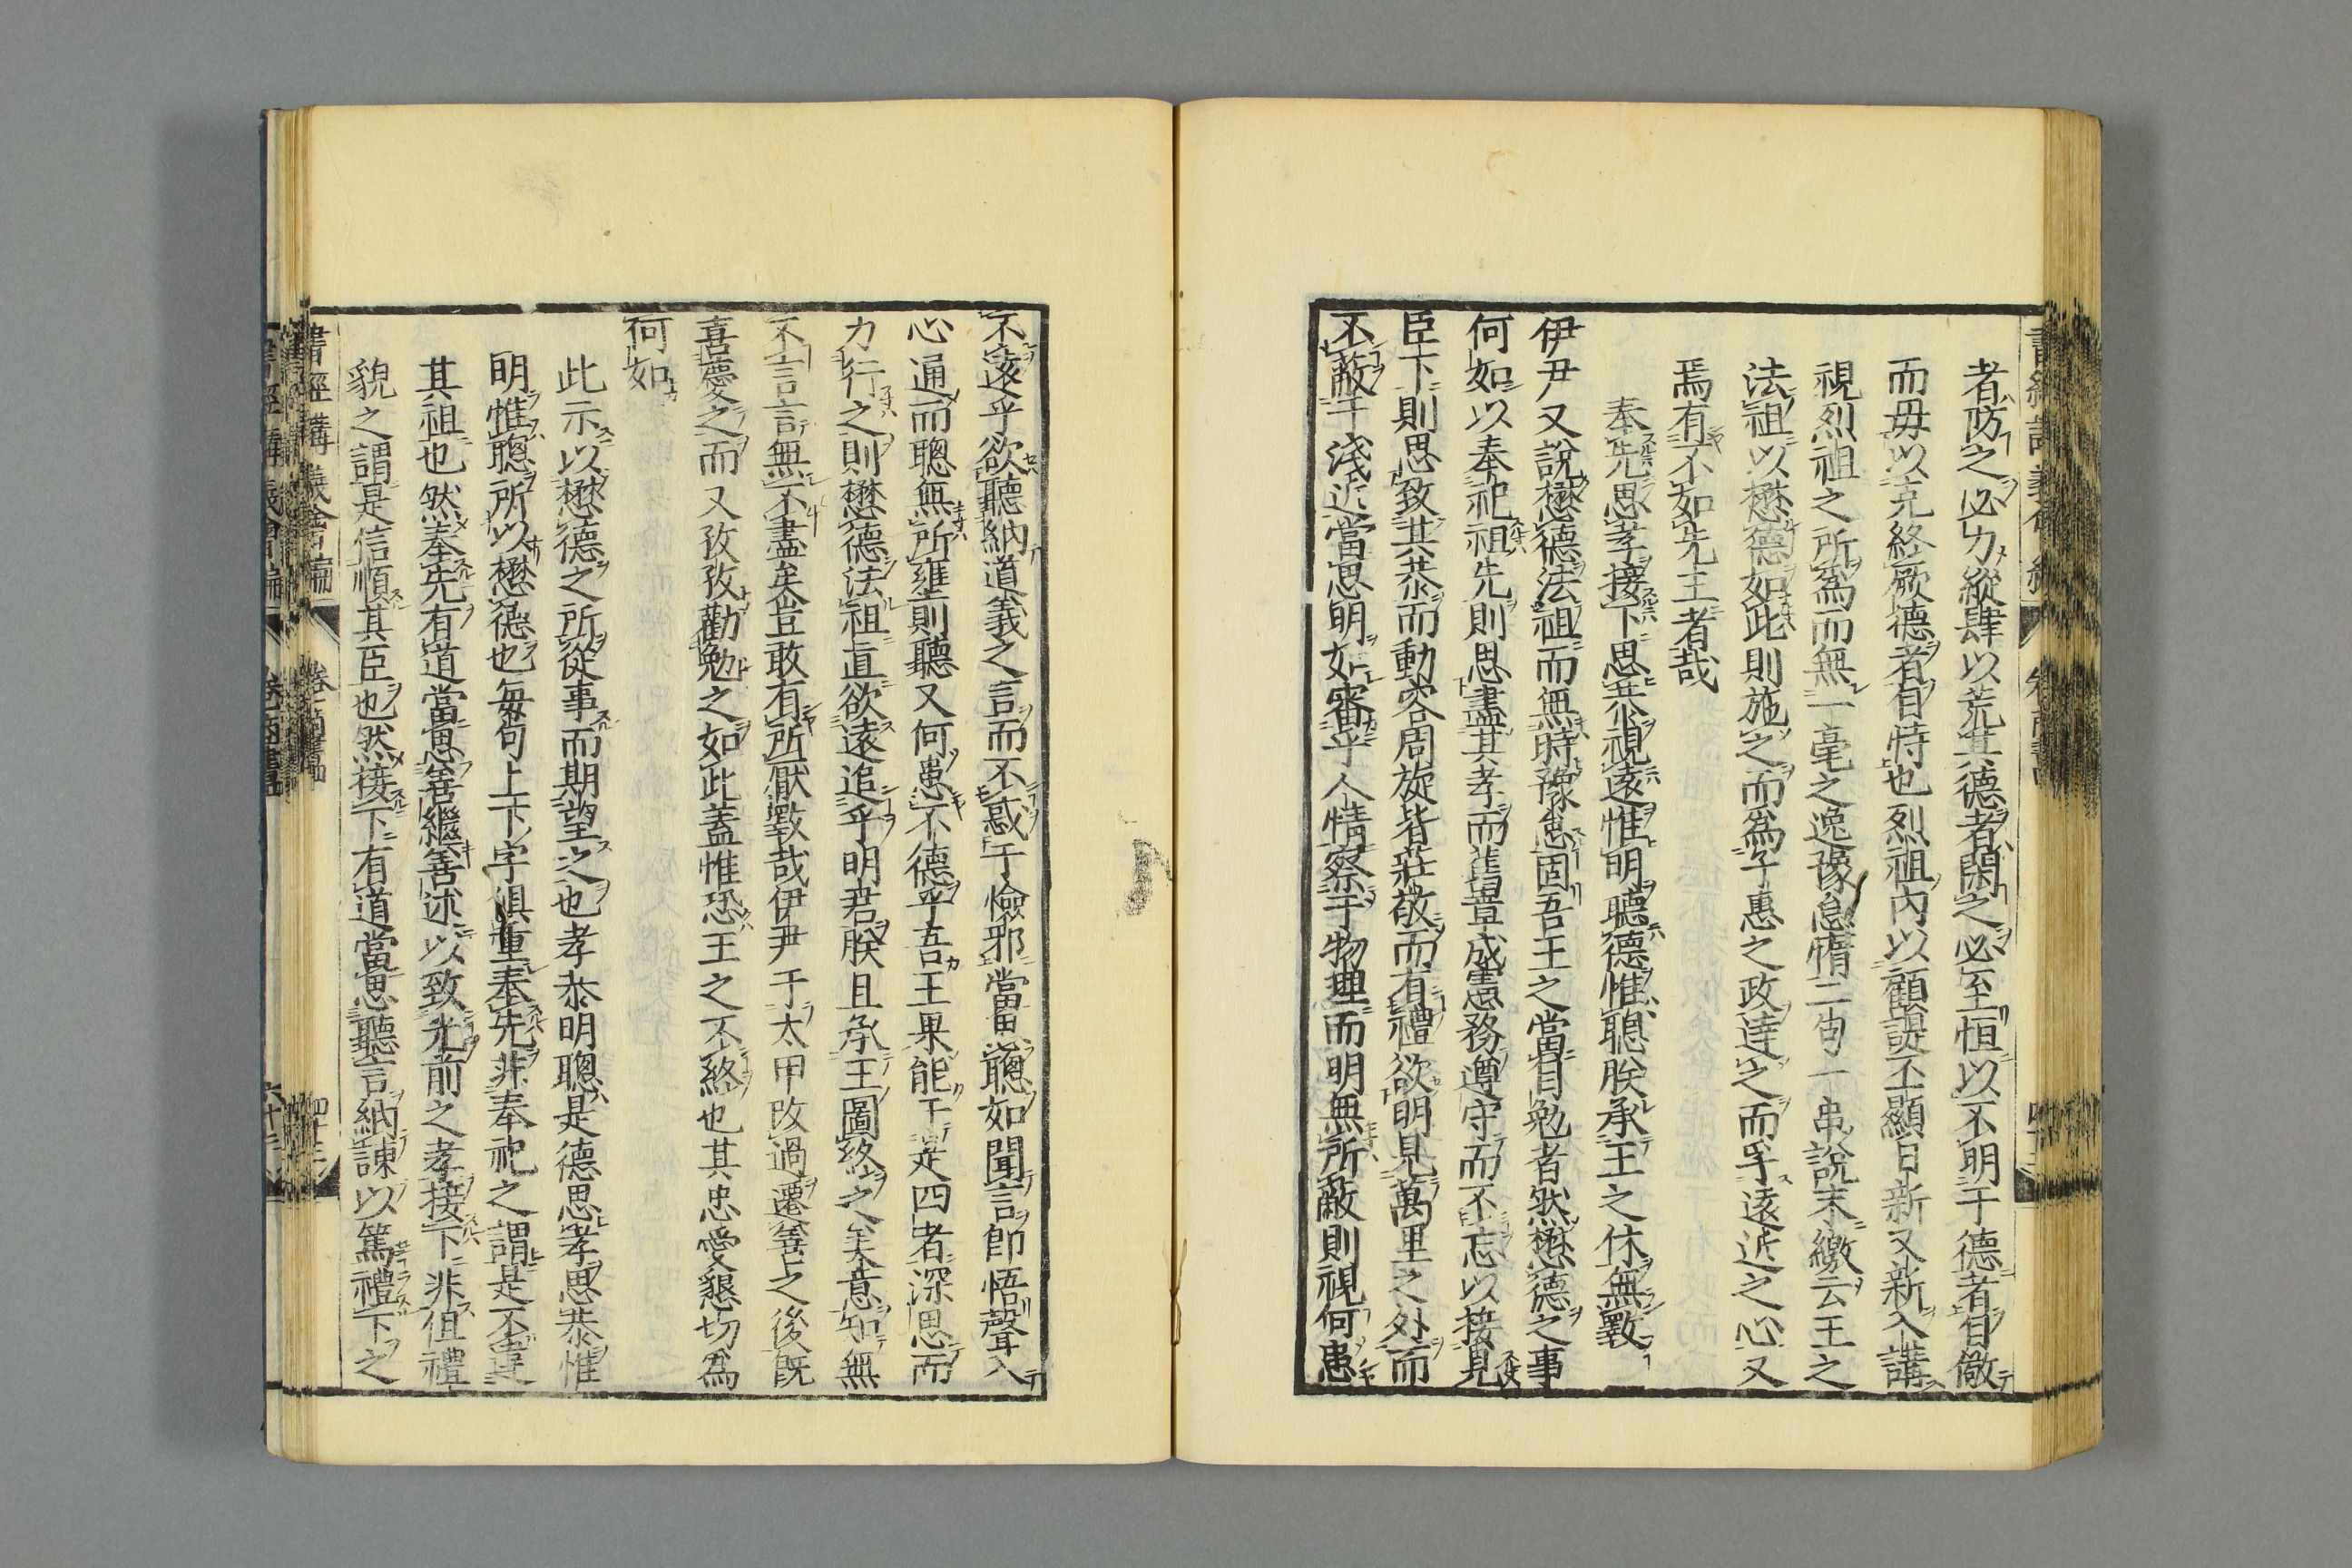 者防之必力縱肆以荒其德者閑之必至恒以不明于德者自儆
而毋以克終厥德者自恃也烈祖內以顧諟丕顯日新又新入講
視烈祖之所爲而無一毫之逸豫怠惰二句一串說末繳云王之
法祖以懋德如此則施之而爲子惠之政達之而孚遠近之心又
焉有不如先王者哉
奉先思孝接下思恭視遠惟明聽德惟聰朕承王之休無斁
伊尹又說懋德法祖而無時豫怠固吾王之當自勉者然懋德之事
何如以奉祀祖先則思盡其孝而舊章成憲務遵守而不忘以接見
臣下則思致其恭而動容周旋皆莊敬而有禮欲明見萬里之外而
不蔽于淺近當思明如審乎人情察乎物理而明無所蔽則視何患
不遠乎欲聽納道義之言而不惑于憸邪當思聰如聞言卽悟聲入
心通而聰無所壅則聽又何患不德乎吾王果能于是四者深思而
力行之則懋德法祖直欲遠追乎明君朕且承王圖終之美意知無
不言言無不盡矣豈敢有所厭斁哉伊尹于太甲改過遷善之後旣
喜慶之而又孜孜勸勉之如此蓋惟恐王之不終也其忠愛懇切爲
何如
此示以懋德之所從事而期望之也孝恭明聰是德思孝思恭惟
明惟聰所以懋德也每句上下字俱重奉先非奉祀之謂是不違
其祖也然奉先有道當思善繼善述以致光前之孝接下非但禮
貌之謂是信順其臣也然接下有道當思聽言納諫以篤禮下之
書經講義會編 卷 商書